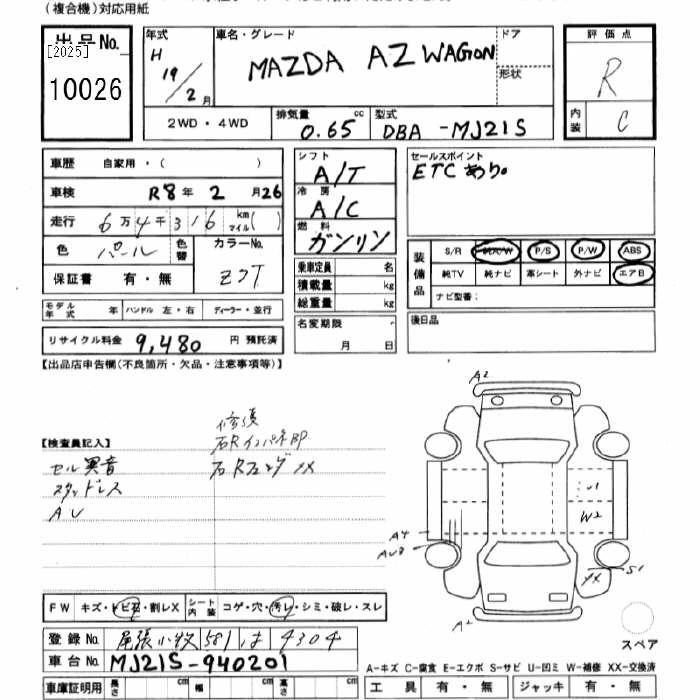 (複合機)対応用紙
出品No.
[2025]
10026
年式 H 19/2月
車名・グレード MAZDA AZ WAGON
ドア
形状
評価点 R
内装 C
2WD・4WD
排気量 0.65 cc
型式 DBA-MJ21S
車歴 自家用・( )
車検 R8年 2月26
走行 6万4千316 km マイル( )
色 パール 色替
カラーNo. Z7T
保証書 有・無
シフト A/T
冷房 A/C
燃料 ガソリン
乗車定員 名
積載量 kg
総重量 kg
セールスポイント
ETCあり。
装備品 S/R 純A/W P/S P/W ABS
純TV 純ナビ 革シート 外ナビ エアB
ナビ型番:
モデル年式 年 ハンドル 左・右 ディーラー・並行
リサイクル料金 9,480 円 預託済
名変期限 月 日
後日品
【出品店申告欄(不良箇所・欠品・注意事項等)】
【検査員記入】
修復
右Rインパネ部
セル異音
右Rフェンダ XX
スタッドレス
AU
A2
U1
W2
A4
AU3
XX S1
A2
FW キズ・トビ石・割レX シート内装 コゲ・穴・汚レ・シミ・破レ・スレ
登録No. 尾張小牧 581 は 4304
車台No. MJ21S-940201
スペア
A-キズ C-腐食 E-エクボ S-サビ U-凹ミ W-補修 XX-交換済
車庫証明用 長さ cm 幅 cm 高さ cm
工具 有・無 ジャッキ 有・無